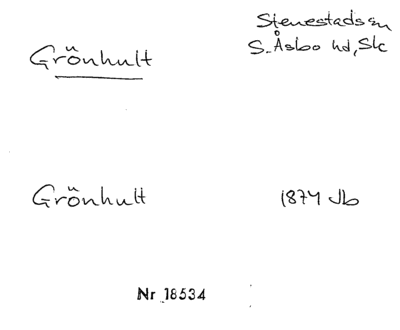 Grönhult
Stenestads sn
S. Åsbo hd, Sk
Grönhult
1874 Jb
Nr 18534